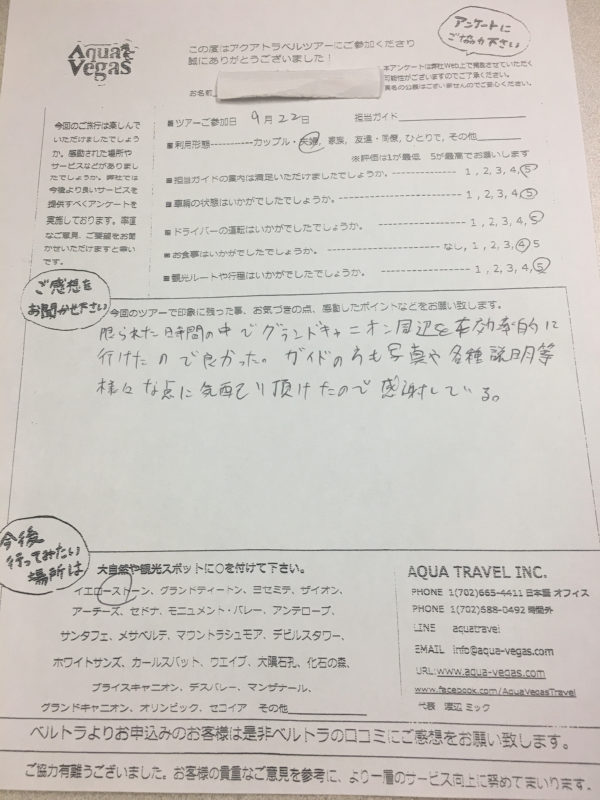 Aqua Vegas
この度はアクアトラベルツアーにご参加くださり
誠にありがとうございました！
アンケートに
ご協力下さい
本アンケートは弊社Web上で掲載させていただく
可能性がございますのでご了承ください。
実名の公表はございませんのでご安心ください。
お名前
今回のご旅行は楽しんで
いただけましたでしょう
か。感動された場所や
サービスなどがありまし
たでしょうか。弊社では
今後より良いサービスを
提供すべくアンケートを
実施しております。率直
なご意見、ご要望をお聞
かせいただけますと幸い
です。
■ツアーご参加日 9月22日 担当ガイド
■利用形態------------カップル・夫婦, 家族, 友達・同僚, ひとりで, その他
※評価は1が最低 5が最高でお願いします
■担当ガイドの案内は満足いただけましたでしょうか。 1, 2, 3, 4, 5
■車輌の状態はいかがでしたでしょうか。 1, 2, 3, 4, 5
■ドライバーの運転はいかがでしたでしょうか。 1, 2, 3, 4, 5
■お食事はいかがでしたでしょうか。 なし, 1, 2, 3, 4, 5
■観光ルートや行程はいかがでしたでしょうか。 1, 2, 3, 4, 5
ご感想を
お聞かせ下さい
今回のツアーで印象に残った事、お気づきの点、感動したポイントなどをお願い致します。
限られた時間の中でグランドキャニオン周辺を効率的に
行けたので良かった。ガイドの方も写真や各種説明等
様々な点に気配り頂けたので感謝している。
今後
行ってみたい
場所は
大自然や観光スポットに○を付けて下さい。
イエローストーン、グランドティートン、ヨセミテ、ザイオン、
アーチーズ、セドナ、モニュメント・バレー、アンテロープ、
サンタフェ、メサベルデ、マウントラシュモア、デビルスタワー、
ホワイトサンズ、カールスバット、ウエイブ、大隕石孔、化石の森、
ブライスキャニオン、デスバレー、マンザナール、
グランドキャニオン、オリンピック、セコイア その他
AQUA TRAVEL INC.
PHONE 1(702)665-4411 日本語 オフィス
PHONE 1(702)588-0492 時間外
LINE aquatravel
EMAIL info@aqua-vegas.com
URL:www.aqua-vegas.com
www.facebook.com/AquaVegasTravel
代表 渡辺 ミック
ベルトラよりお申込みのお客様は是非ベルトラの口コミにご感想をお願い致します。
ご協力有難うございました。お客様の貴重なご意見を参考に、より一層のサービス向上に努めてまいります。